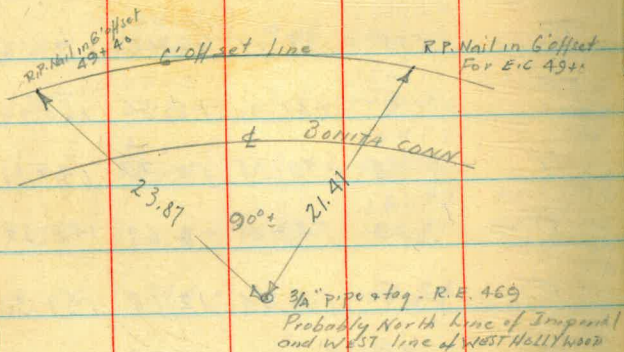 R.P. Nail in 6' offset
49+40
6' offset Line
R.P. Nail in 6' offset
For E.C 49+
℄ BONITA CONN
23.87
90°±
21.41
3/4" pipe & tag - R.E. 469
Probably North Line of Imperial
and WEST line of WEST HOLLYWOOD